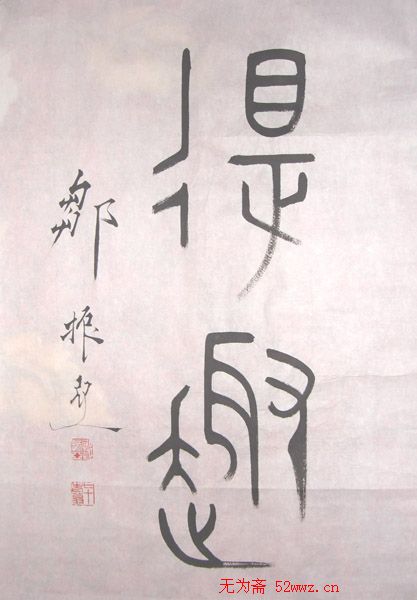 得趣
鄒振
无为斋 52wwz.cn